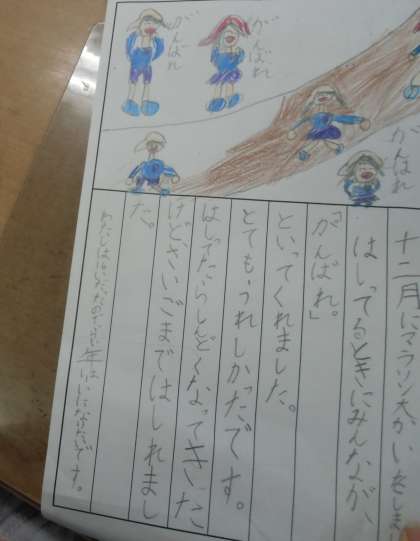 がんばれ
がんばれ
がんばれ
十二月にマラソン大かいをしま
はしってるときにみんなが、
「がんばれ。」
といってくれました。
とてもうれしかったです。
はしってたらしんどくなってきた
けどさいごまではしれまし
た。